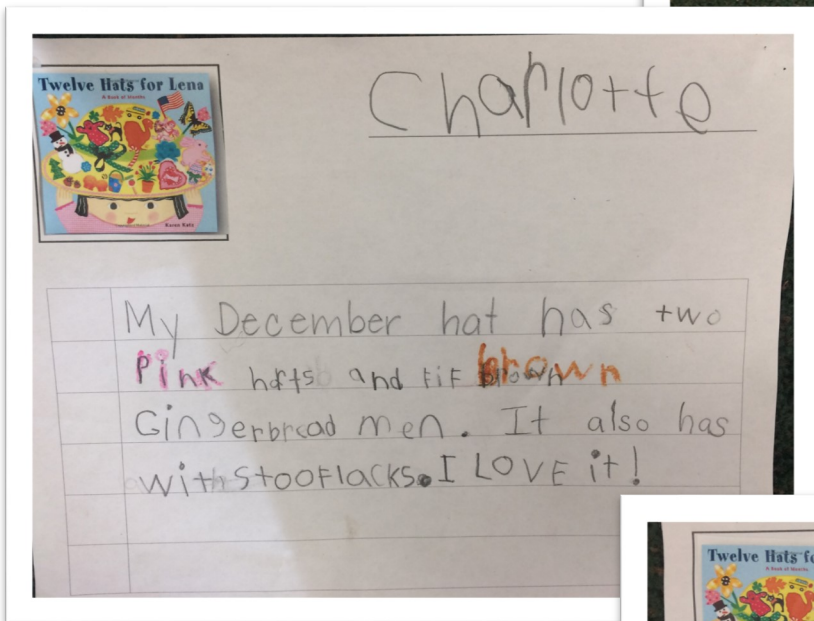 Twelve Hats for Lena
A Book of Months
Karen Katz
Charlotte
My December hat has two
Pink harts and fif brown
Gingerbread men. It also has
with stooflacks. I LOVE it!
Twelve Hats fo
A Book of Months